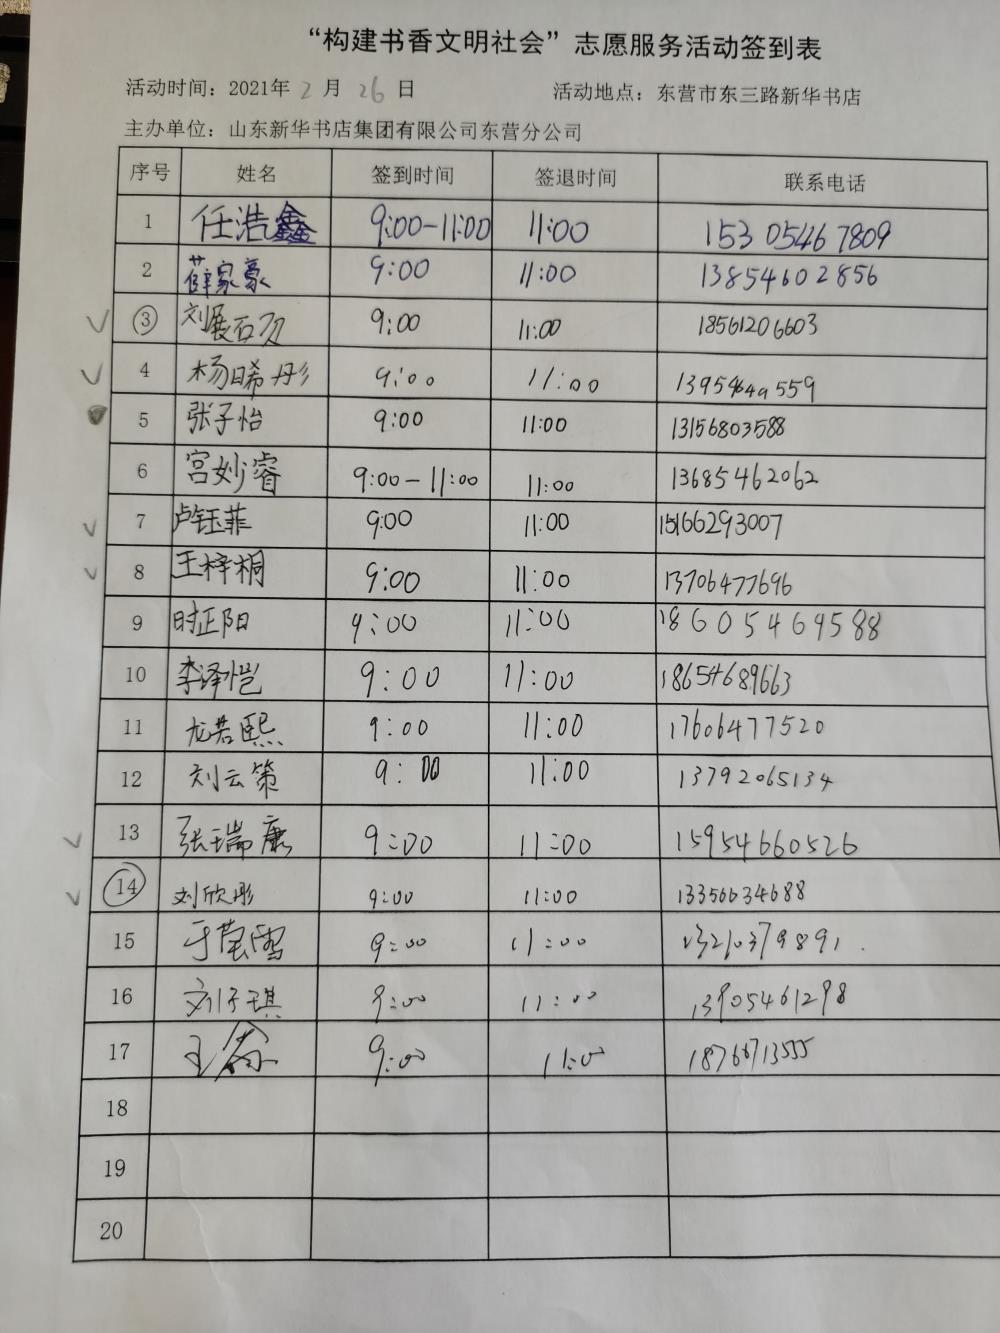 “构建书香文明社会”志愿服务活动签到表
活动时间：2021年 2 月 26 日 活动地点：东营市东三路新华书店
主办单位：山东新华书店集团有限公司东营分公司
序号 姓名 签到时间 签退时间 联系电话
1 任浩鑫 9:00-11:00 11:00 15305467809
2 薛家豪 9:00 11:00 13854602856
3 刘展硕 9:00 11:00 18561206603
4 杨晞彤 9:00 11:00
5 张子怡 9:00 11:00 13156803588
6 宫妙睿 9:00-11:00 11:00 13685462062
7 卢钰菲 9:00 11:00 15166293007
8 王梓桐 9:00 11:00 13706477696
9 时正阳 9:00 11:00 18605469588
10 李泽恺 9:00 11:00 18654689663
11 龙若熙 9:00 11:00 17606477520
12 刘云策 9:00 11:00 13792065134
13 张瑞康 9:00 11:00 15954660526
14 刘欣彤 9:00 11:00 13356634688
15 于莹雪 9:00 11:00 13210379891
16 刘子琪 9:00 11:00 13905461298
17 王 9:00 11:00 18766713555
18
19
20